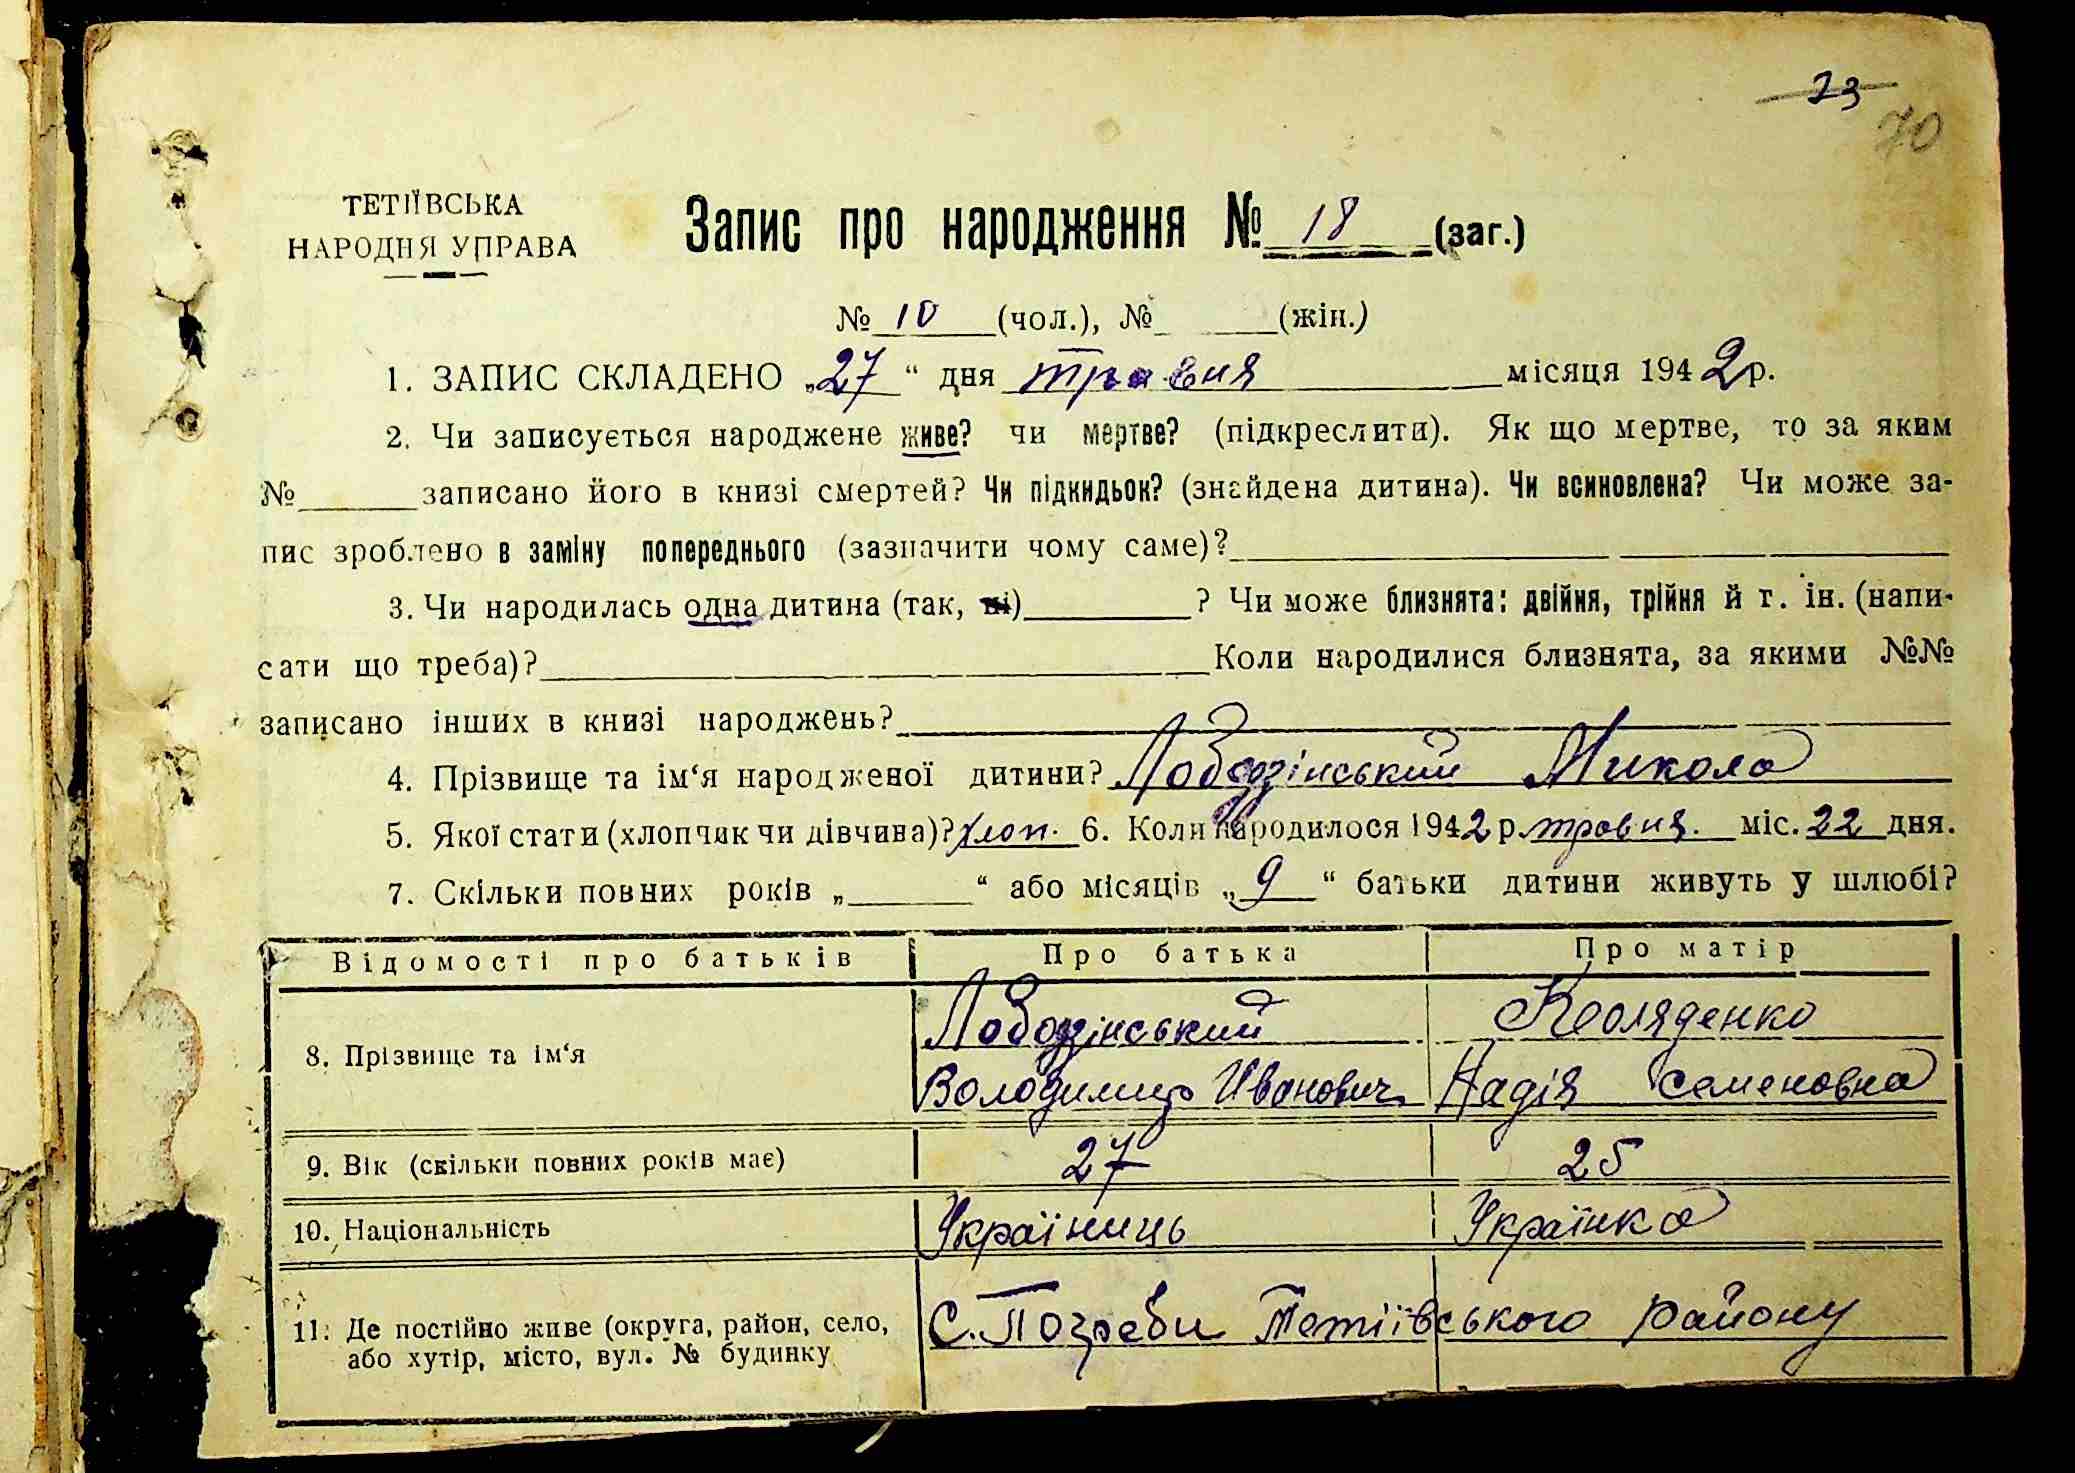 73
70
ТЕТІЇВСЬКА
НАРОДНЯ УПРАВА
Запис про народження № 18 (заг.)
№ 10 (чол.), № (жін.)
1. ЗАПИС СКЛАДЕНО „27“ дня травня місяця 1942 р.
2. Чи записується народжене живе? чи мертве? (підкреслити). Як що мертве, то за яким
№ записано його в книзі смертей? Чи підкидьок? (знайдена дитина). Чи всиновлена? Чи може за-
пис зроблено в заміну попереднього (зазначити чому саме)?
3. Чи народилась одна дитина (так, ні) ? Чи може близнята: двійня, трійня й т. ін. (напи-
сати що треба)? Коли народилися близнята, за якими №№
записано інших в книзі народжень?
4. Прізвище та ім‘я народженої дитини? Лободзінський Микола
5. Якої стати (хлопчик чи дівчина)? хлоп. 6. Коли народилося 1942 р. травня. міс. 22 дня.
7. Скільки повних років „ “ або місяців „9“ батьки дитини живуть у шлюбі?
Відомості про батьків Про батька Про матір
8. Прізвище та ім‘я Лободзінський Володимир Иванович Коляденко Надія Семеновна
9. Вік (скільки повних років має) 27 25
10. Національність Україниць Українка
11. Де постійно живе (округа, район, село,
або хутір, місто, вул. № будинку С. Погреби Тетіївського району